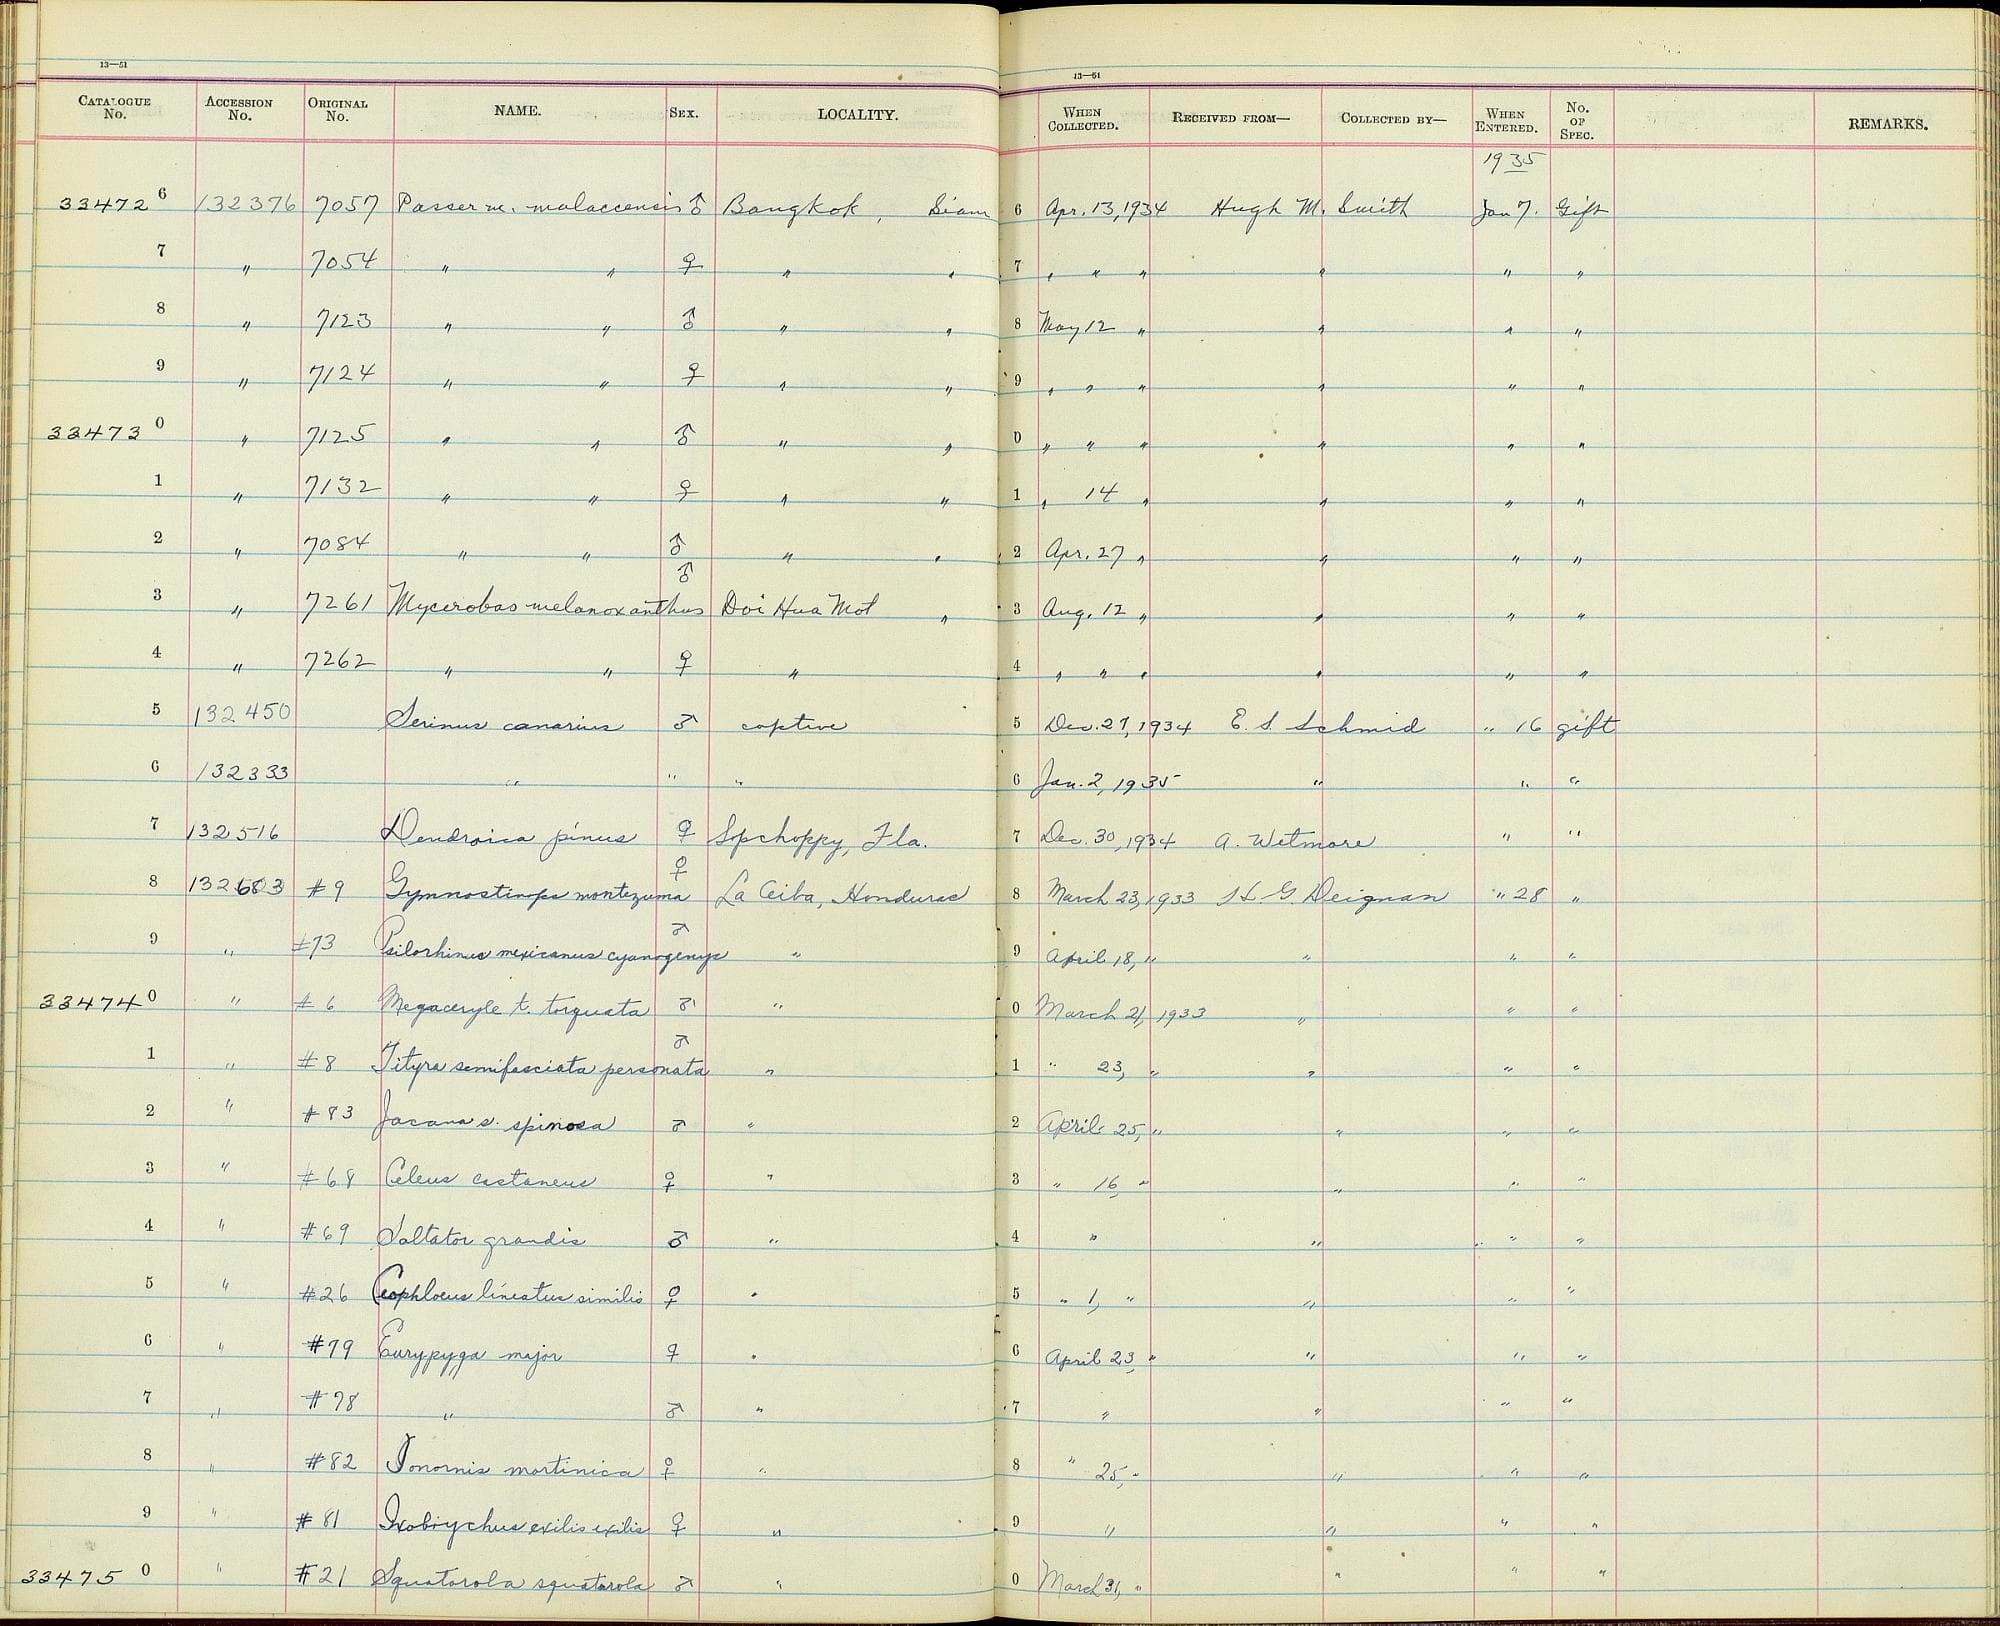 13—51
CATALOGUE No. ACCESSION No. ORIGINAL No. NAME. SEX. LOCALITY.
334726 132376 7057 Passer m. malaccensis ♂ Bangkok, Siam
7 " 7054 " " ♀ " "
8 " 7123 " " ♂ " "
9 " 7124 " " ♀ " "
334730 " 7125 " " ♂ " "
1 " 7132 " " ♀ " "
2 " 7084 " " ♂ " "
3 " 7261 Mycerobas melanoxanthus ♂ Doi Hua Mot "
4 " 7262 " " ♀ "
5 132450 Serinus canarius ♂ captive
6 132333 " " "
7 132516 Dendroica pinus ♀ Sopchoppy, Fla.
8 132603 #9 Gymnostinops montezuma ♀ La Ceiba, Honduras
9 " #73 Psilorhinus mexicanus cyanogenys ♂ "
334740 " #6 Megaceryle t. torquata ♂ "
1 " #8 Tityra semifasciata personata ♂ "
2 " #83 Jacana s. spinosa ♂ "
3 " #68 Celeus castaneus ♀ "
4 " #69 Saltator grandis ♂ "
5 " #26 Ceophloeus lineatus similis ♀ "
6 " #79 Eurypyga major ♀ "
7 " #78 " ♂ "
8 " #82 Ionornis martinica ♀ "
9 " #81 Ixobrychus exilis exilis ♀ "
334750 " #21 Squatarola squatarola ♂ "
13—51
WHEN COLLECTED. RECEIVED FROM— COLLECTED BY— WHEN ENTERED. No. OF SPEC. REMARKS.
1935
6 Apr. 13, 1934 Hugh M. Smith Jan 7. Gift
7 " " " " " "
8 May 12 " " " "
9 " " " " " "
0 " " " " " "
1 " 14 " " " "
2 Apr. 27 " " " "
3 Aug. 12 " " " "
4 " " " " " "
5 Dec. 27, 1934 E. S. Schmid " 16 gift
6 Jan. 2, 1935 " " "
7 Dec. 30, 1934 A. Wetmore " "
8 March 23, 1933 H. G. Deignan " 28 "
9 April 18, " " " "
0 March 21, 1933 " " "
1 " 23, " " " "
2 April 25, " " " "
3 " 16, " " " "
4 " " " "
5 " 1, " " " "
6 April 23, " " " "
7 " " " "
8 " 25, " " " "
9 " " " "
0 March 31, " " " "